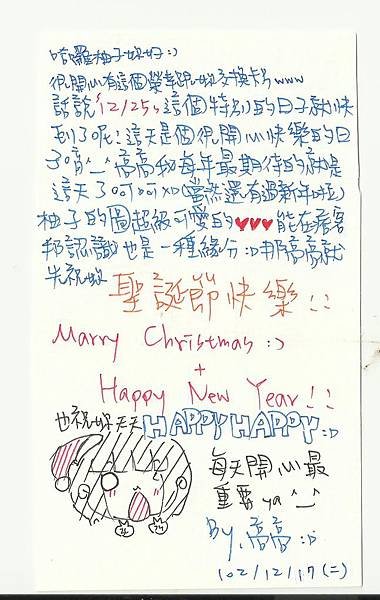 哈囉柚子妳好:)
很開心有這個榮幸跟妳交換卡片www
話說12/25，這個特別的日子就快
到了呢！這天是個很開心快樂的日
了唷^_^喬喬我每年最期待的就是
這天了呵呵XD(當然還有過新年啦)
柚子的圖超級可愛的♥♥♥能在痞客
邦認識也是一種緣分:D那喬喬就
先祝妳
聖誕節快樂!!
Marry Christmas:)
+
Happy New Year!!
也祝妳天天HAPPYHAPPY:D
每天開心最
重要ya^_^
By.喬喬:D
102/12/17(二)